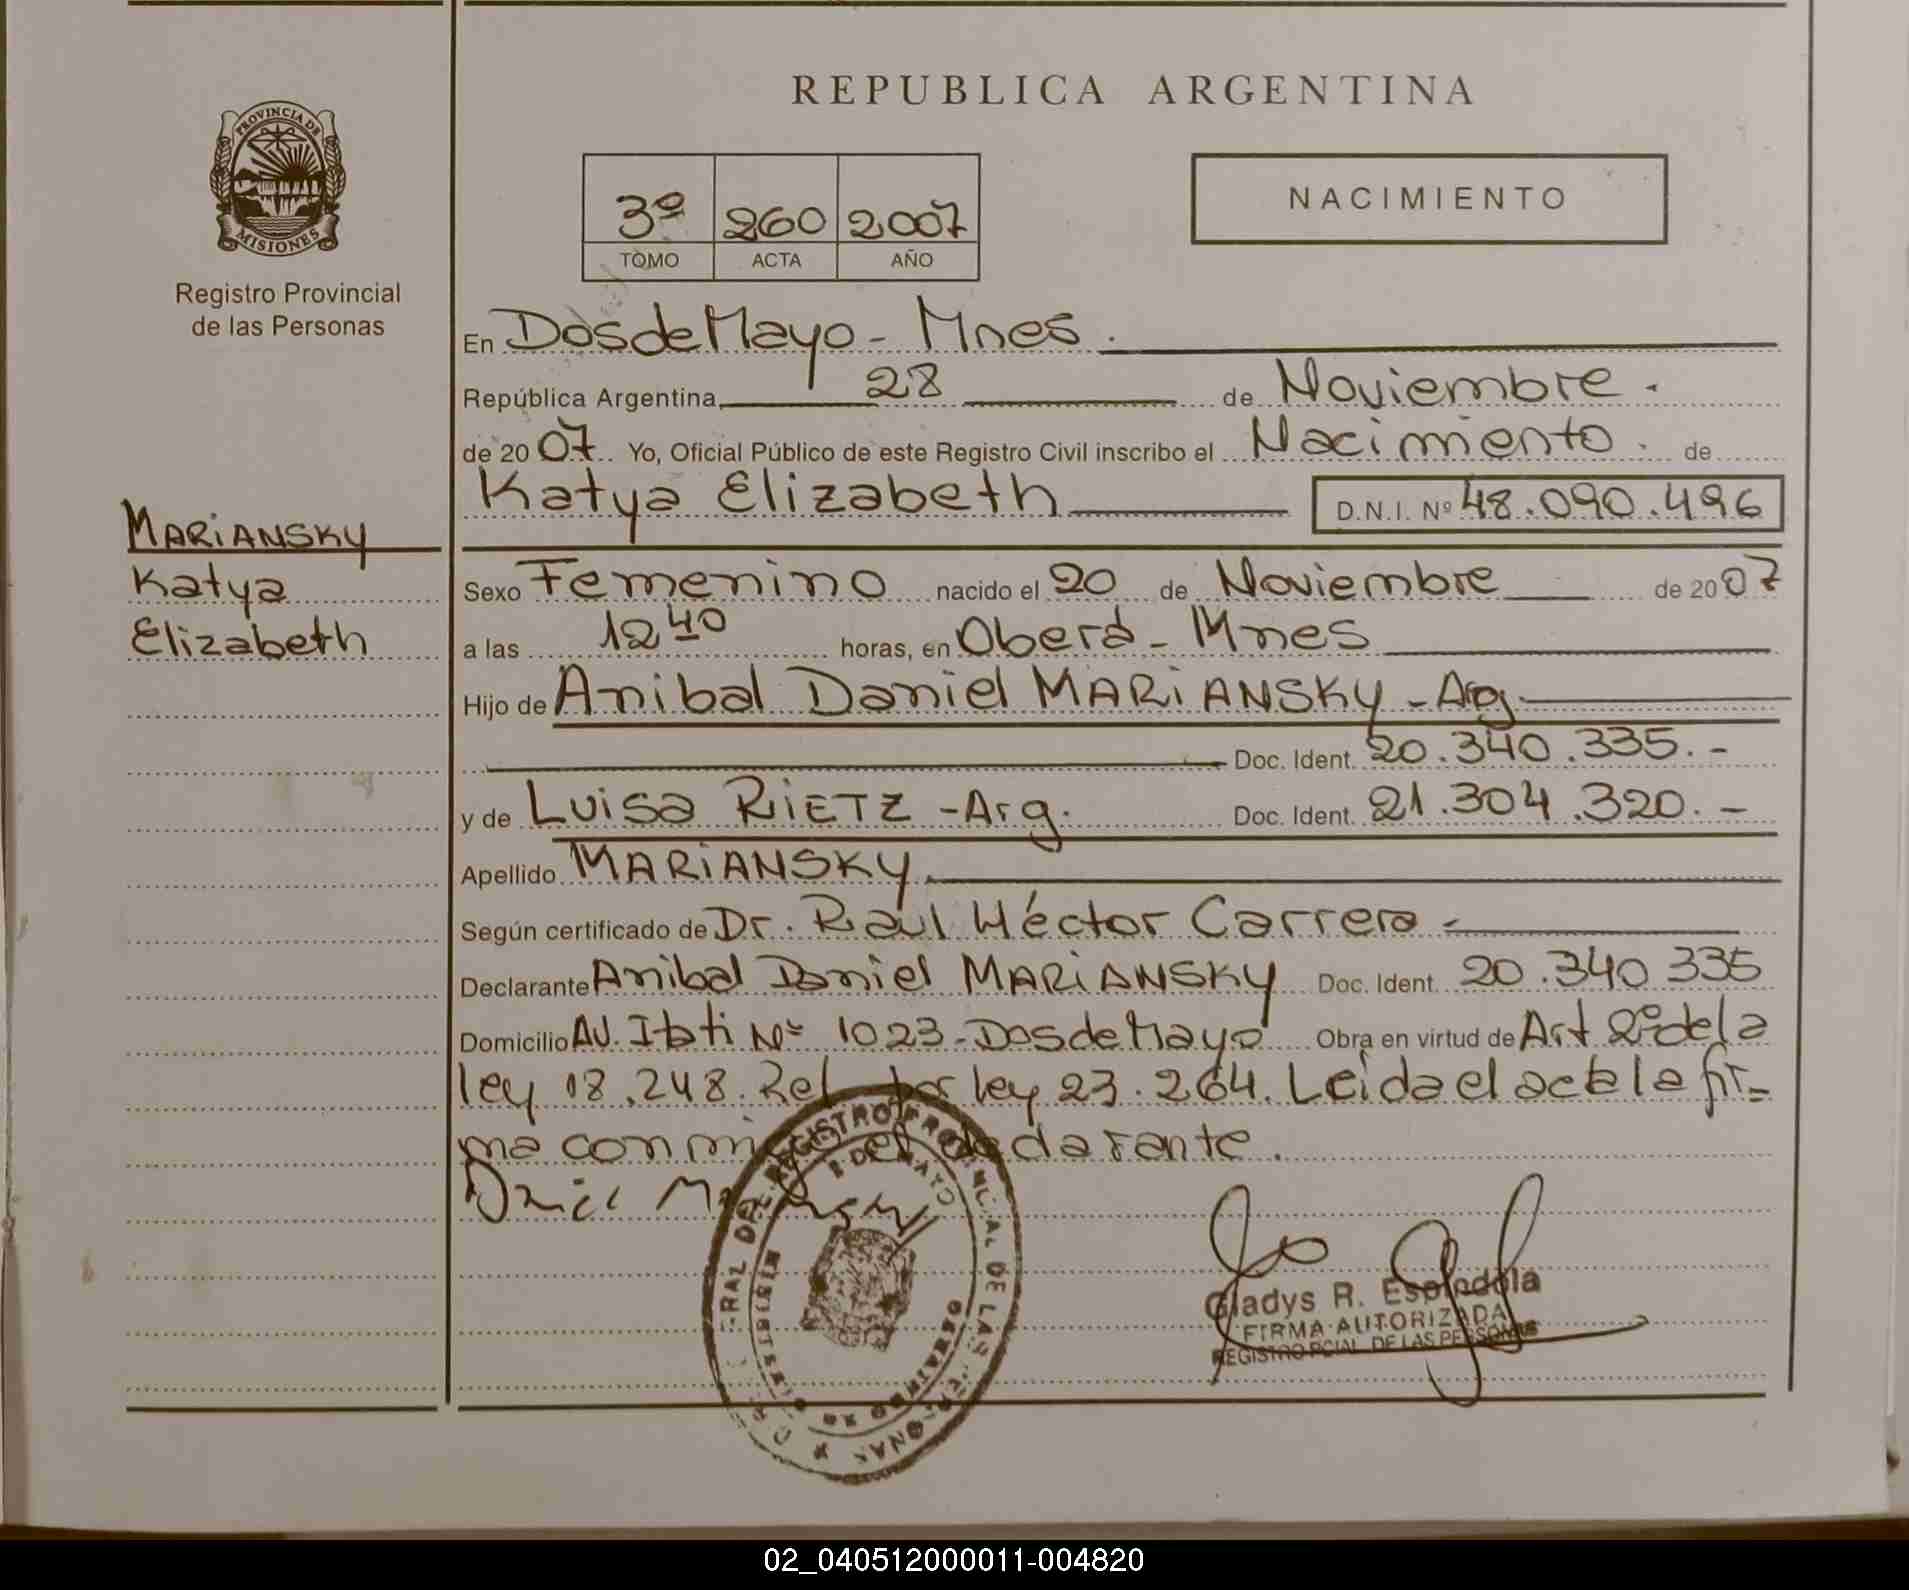 REPUBLICA ARGENTINA
PROVINCIA DE
MISIONES
Registro Provincial
de las Personas
3º 260 2007
TOMO ACTA AÑO
NACIMIENTO
En Dos de Mayo - Mnes.
República Argentina, 28 de Noviembre.
de 2007. Yo, Oficial Público de este Registro Civil inscribo el Nacimiento. de
Katya Elizabeth D.N.I. Nº 48.090.496
MARIANSKY
Katya
Elizabeth
Sexo Femenino nacido el 20 de Noviembre de 2007
a las 12 40 horas, en Oberá - Mnes
Hijo de Anibal Daniel MARIANSKY - Arg.
Doc. Ident. 20.340.335.-
y de Luisa RIETZ - Arg. Doc. Ident. 21.304.320.-
Apellido MARIANSKY.
Según certificado de Dr. Raúl Héctor Carrera -
Declarante Anibal Daniel MARIANSKY Doc. Ident. 20.340 335
Domicilio AV. Ibti Nº 1023 - Dos de Mayo Obra en virtud de Art 2º de la
ley 18.248. Ref. por ley 23.264. Leida el acta la fir-
ma conmigo el declarante.
REGISTRO PROVINCIAL DE LAS PERSONAS
2 DE MAYO
Gladys R. Espindola
FIRMA AUTORIZADA
REGISTRO PCIAL. DE LAS PERSONAS
02_040512000011-004820